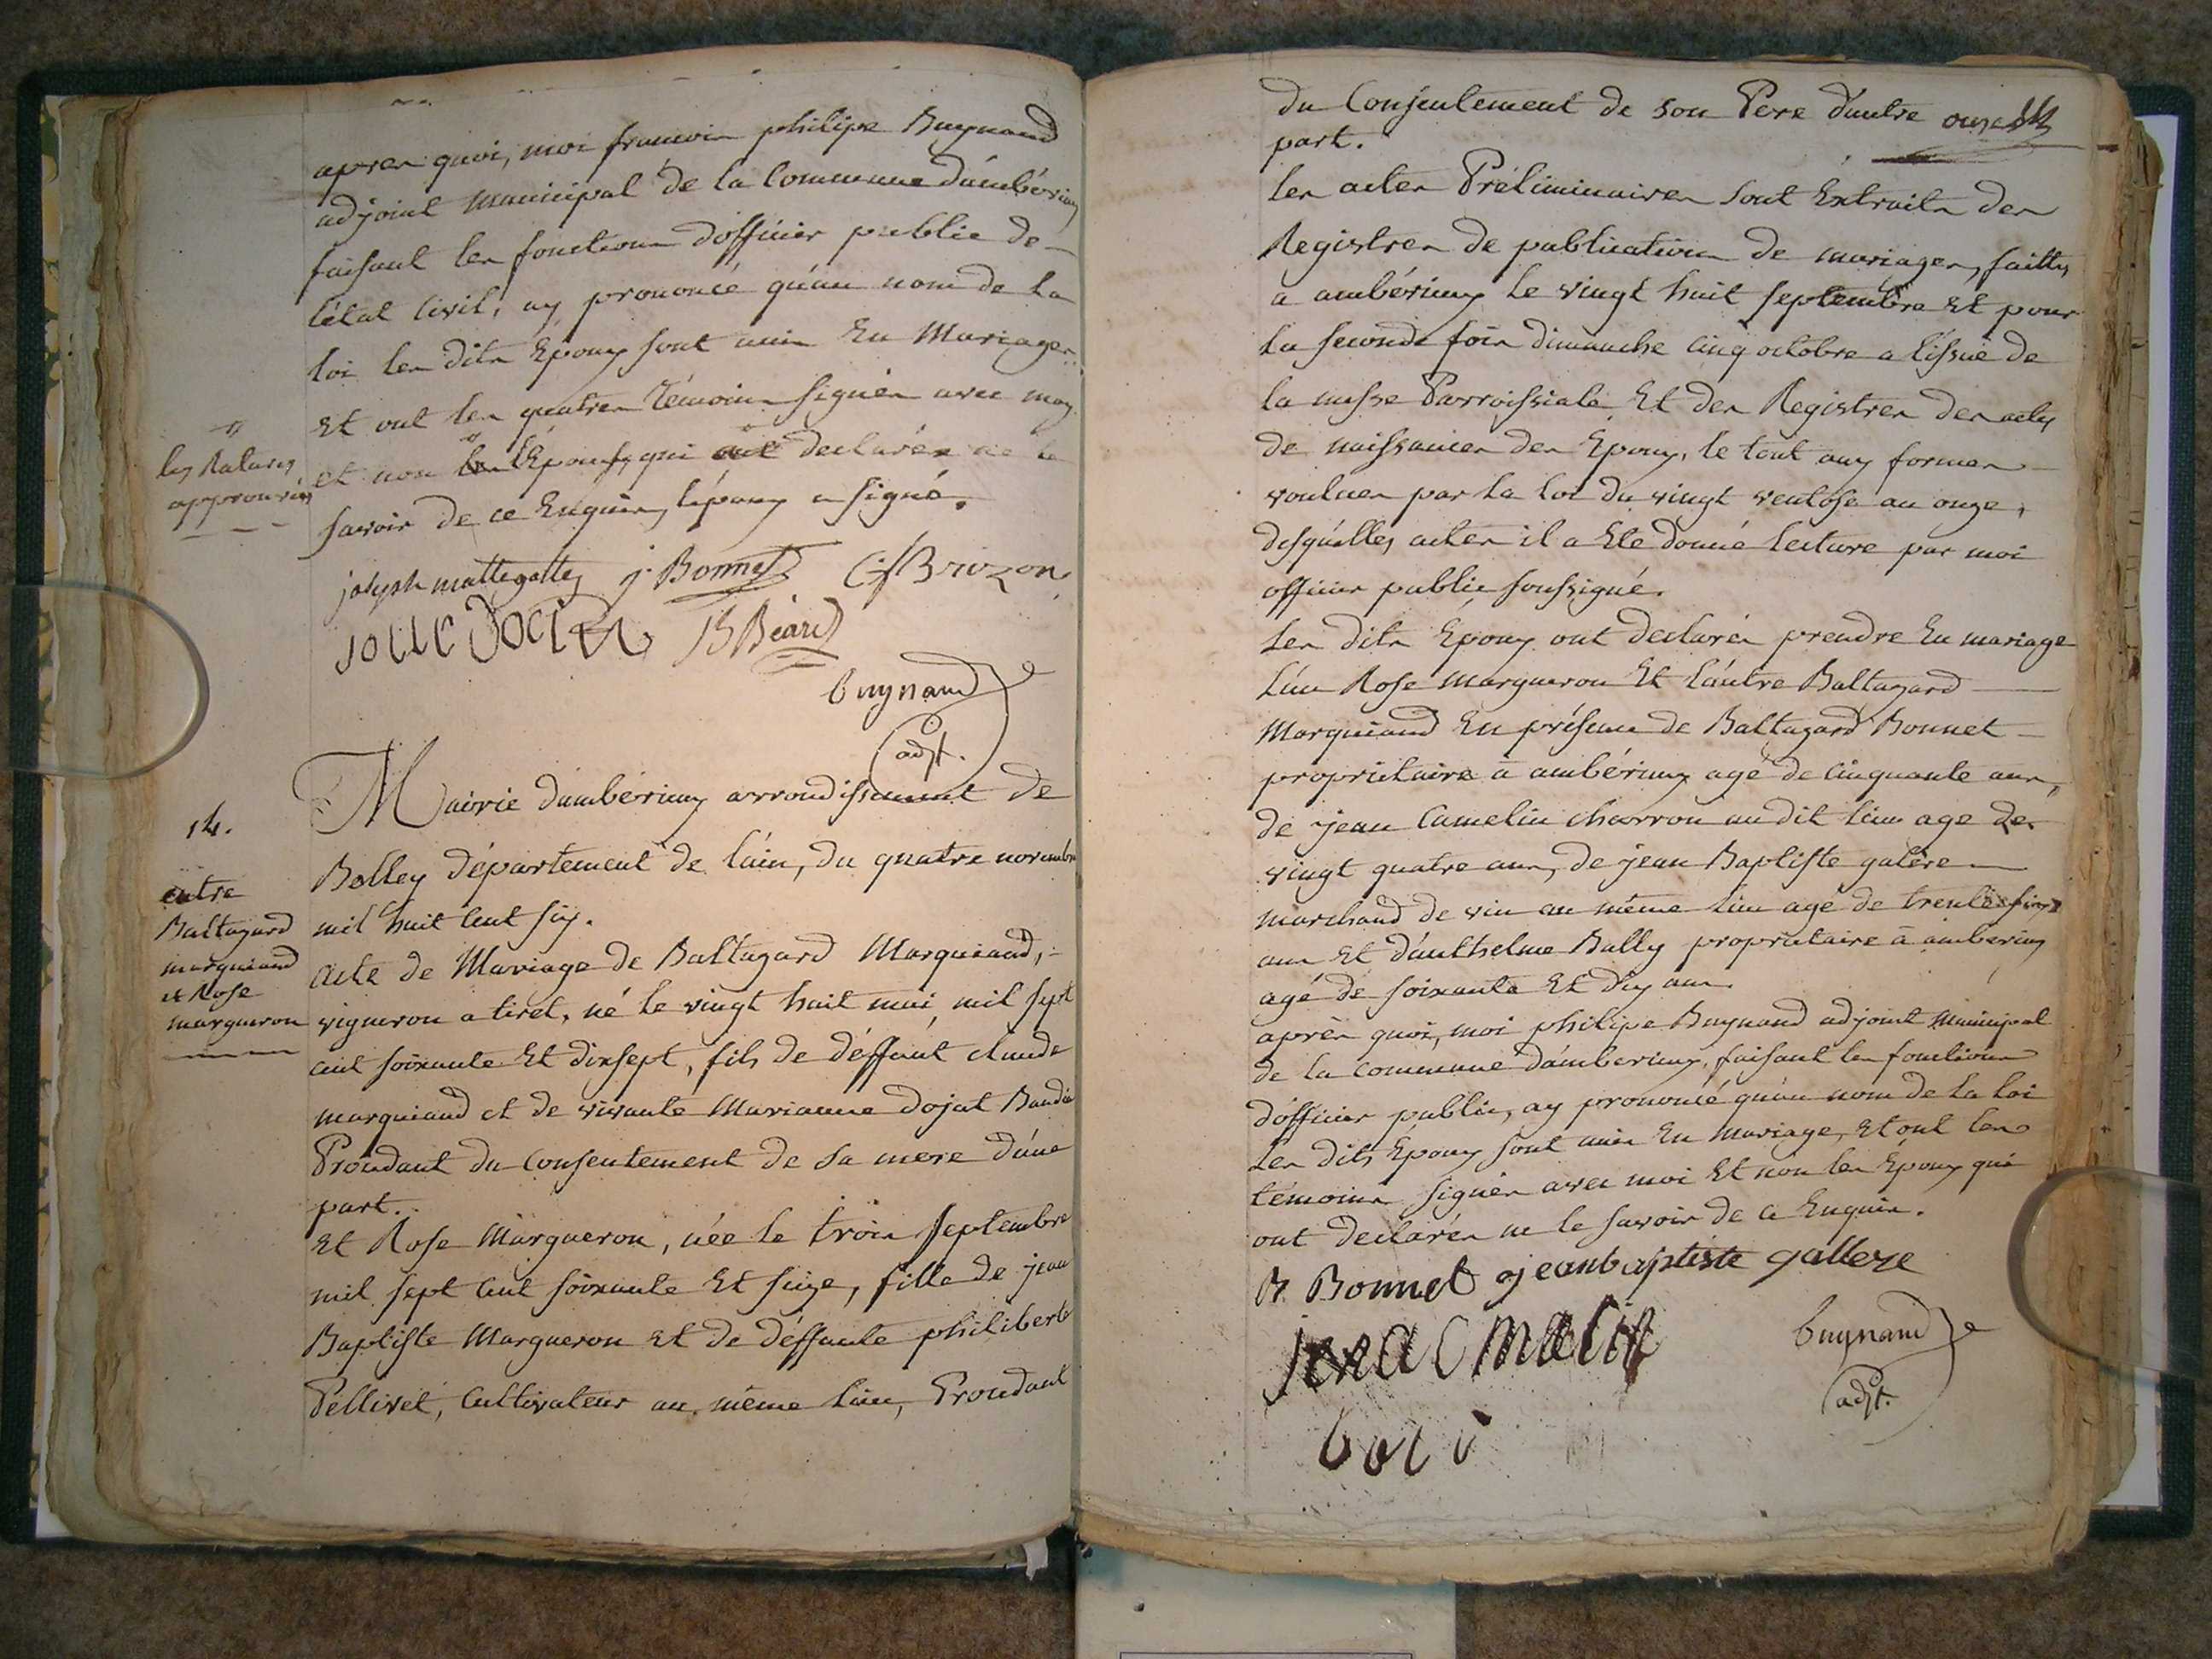 apres quoi, moi francois philipe Buynand
adjoint municipal de la Commune d'ambérieux
faisant les fonctions d'officier public de
l'état civil, ay prononcé qu'au nom de la
loi les dits Epoux sont unis En Mariages
Et ont les quatres témoins signés avec moy
et non l'Epouse, qui a declarée ne le
savoir de ce Enquis, l'époux a signé.
les Ratures
approuvées
joseph mattegattes j. Bonnet Brozon
B Béard
buynand
adjt.
14.
entre
Baltazard
marquiand
et Rose
margueron
Mairie d'ambérieux arrondissement de
Belley département de l'ain, du quatre novembre
mil huit Cent six.
Acte de Mariage de Baltazard Marquiand,
vigneron a tiret, né le vingt huit mai, mil sept
cent soixante Et dixsept, fils de déffunt claude
marquiand et de vivante Marianne dojat Baudin
Procedant du Consentement de sa mere d'une
part.
Et Rose Margueron, née le trois septembre
mil sept Cent soixante Et seize, fille de jean
Baptiste Margueron Et de déffunte philiberte
Pellivet, Cultivateur au même lieu, Procedant
du Consentement de son Pere d'autre onze
part.
Les actes Préliminaires sont Extraits des
Registres de publication de mariages, faittes
a ambérieux le vingt huit septembre Et pour
la seconde fois dimanche cinq octobre a l'issue de
la messe Parroissiale Et des Registres des actes
de naissances des Epoux, le tout aux formes
voulues par la loi du vingt ventose an onze,
desquelles actes il a Eté donné lecture par moi
officier public soussigné.
Les dits Epoux ont declarés prendre En mariage
L'un Rose Margueron Et l'autre Baltazard
Marquiand En présence de Baltazard Bonnet
propriétaire à ambérieux agé de cinquante ans,
de jean Camelin charron au dit lieu age de
vingt quatre ans, de jean Baptiste galère
marchand de vin au même lieu agé de trente six
ans Et d'anthelme Bally propriétaire à amberieux
agé de soixante Et dix ans.
après quoi, moi philipe Buynand adjoint Municipal
de la commune d'amberieux, faisant les fonctions
d'officier public, ay prononcé qu'au nom de la loi
Les dits Epoux sont unis En mariage, Et ont les
témoins signés avec moi Et non les Epoux qui
ont declarés ne le savoir de ce Enquis.
B Bonnet jeanbaptiste gallere
buynand
adjt.